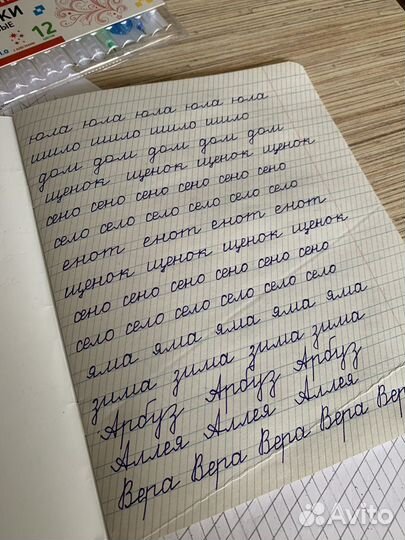 КИ
НЫЕ
12
юла юла юла юла юла
шило шило шило шило
дом дом дом дом дом
щенок щенок щенок щенок
сено сено сено сено сено сено
село село село село село село
енот енот енот енот
щенок щенок щенок щенок
сено сено сено сено сено сено
село село село село село село
яма яма яма яма яма
зима зима зима зима
Арбуз Арбуз Арбуз
Аллея Аллея Аллея
Вера Вера Вера Вера Вера
Avito